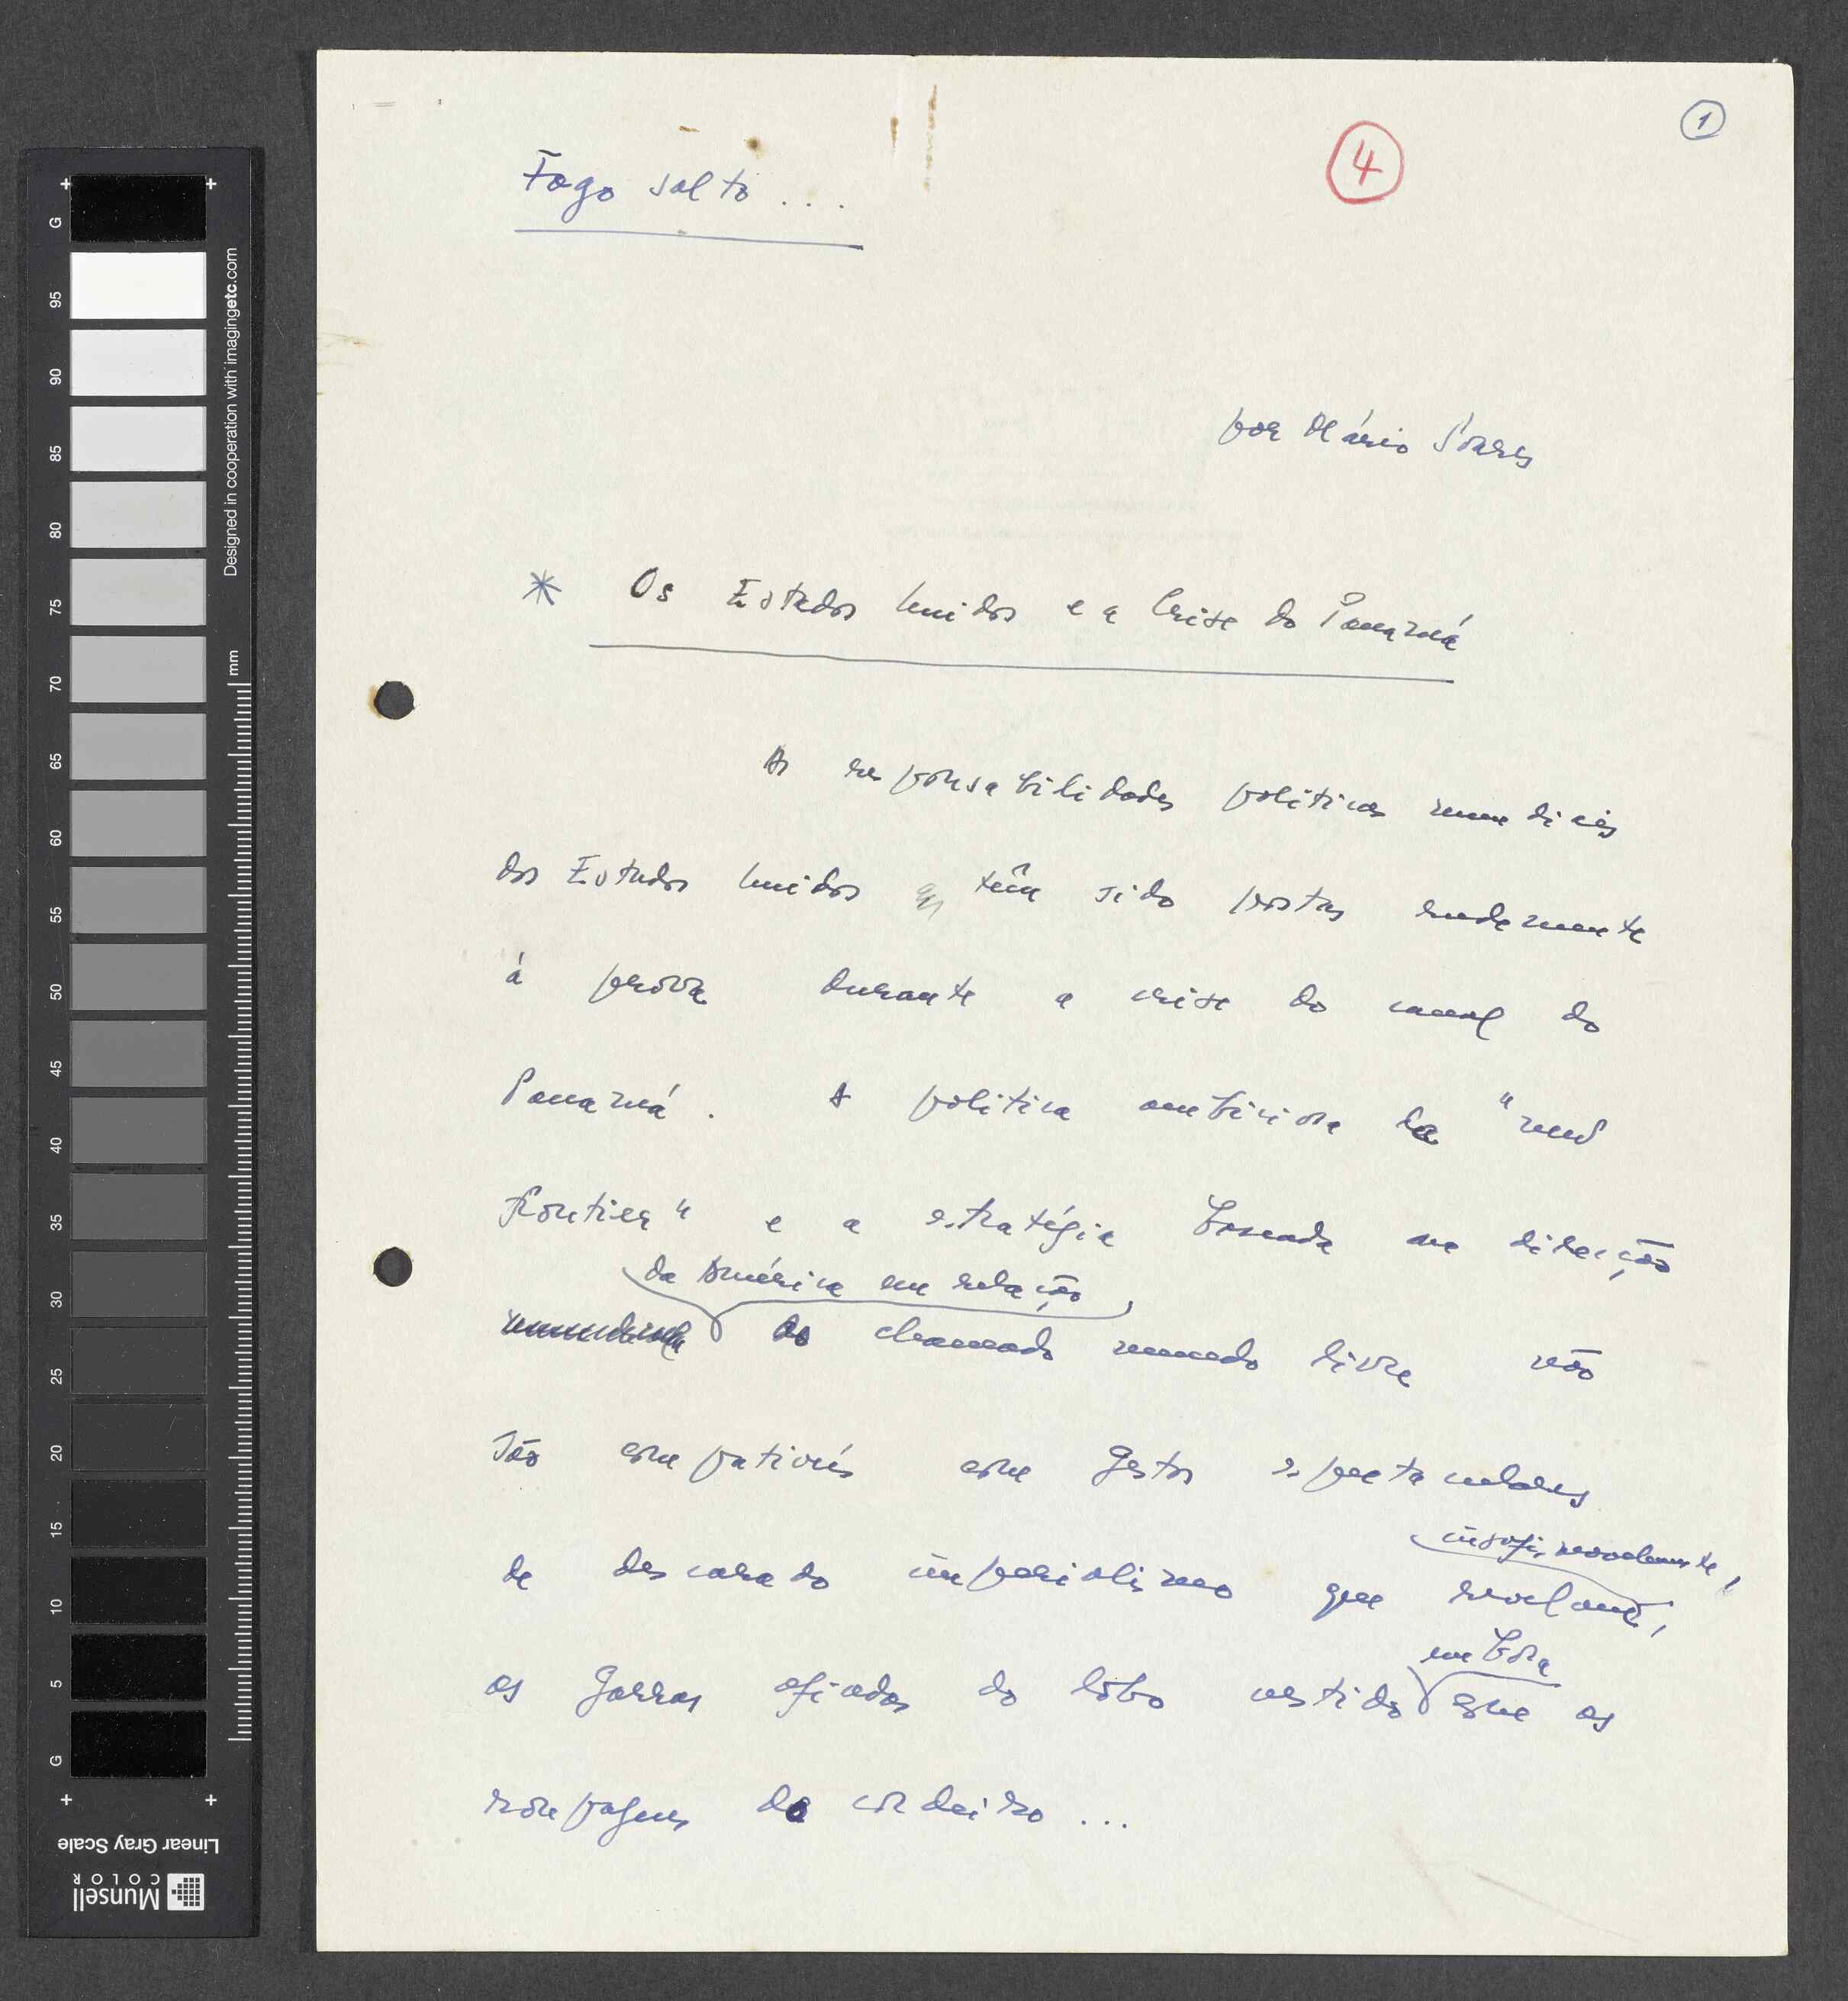 1
4
Fogo solto...
por Mário Soares
* Os Estados Unidos e a Crise do Panamá
As responsabilidades políticas mundiais
dos Estados Unidos têm sido postas rudemente
à prova durante a crise do canal do
Panamá. A política ambiciosa da "new
frontier" e a estratégia baseada na direcção
da América em relação
ao chamado mundo livre não
são compatíveis com gestos espectaculares
insofismavelmente,
de descarado imperialismo que revelam,
embora
as garras afiadas do lôbo vestido com as
roupagens do cordeiro...
G
95
90
85
80
75
70
65
60
55
50
45
40
35
30
25
20
15
10
5
G
Designed in cooperation with imagingetc.com
mm
Linear Gray Scale
Munsell
COLOR